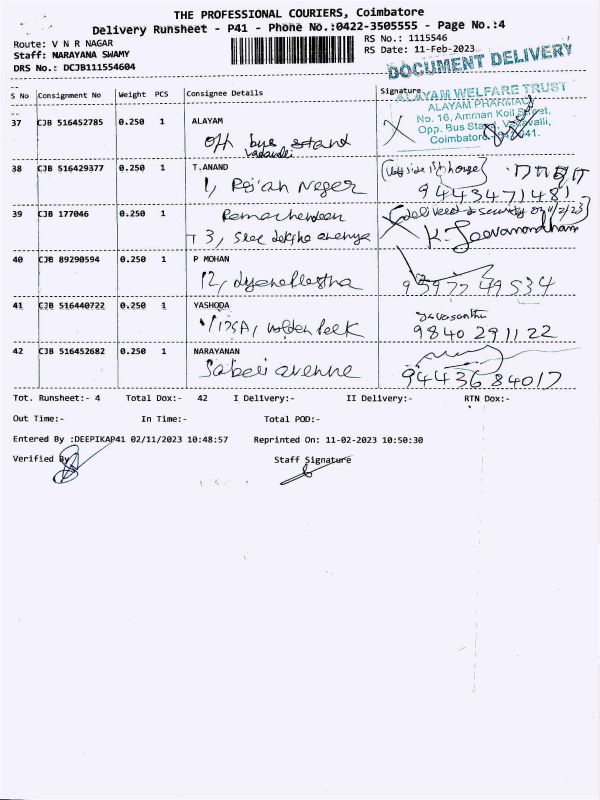 THE PROFESSIONAL COURIERS, Coimbatore
Delivery Runsheet - P41 - Phone No.:0422-3505555 - Page No.:4
Route: V N R NAGAR
Staff: NARAYANA SWAMY
DRS No.: DCJB111554604
RS No.: 1115546
RS Date: 11-Feb-2023
DOCUMENT DELIVERY
S No Consignment No Weight PCS Consignee Details Signature
ALAYAM WELFARE TRUST
ALAYAM PHARMACY
No. 16, Amman Koil Street,
Opp. Bus Stand, Vadavalli,
Coimbatore - 641041.
37 CJB 516452785 0.250 1 ALAYAM
off bus stand
vadavalli
38 CJB 516429377 0.250 1 T.ANAND
1, Rajan Nager
9443471481
39 CJB 177046 0.250 1 Ramachendran
(delivered to security on 11/2/23)
T 3, Sree
K. Jeevanandham
40 CJB 89290594 0.250 1 P MOHAN
12,
95977 49534
41 CJB 516440722 0.250 1 YASHODA
Javasantha
1/125A,
9840 291122
42 CJB 516452682 0.250 1 NARAYANAN
Saberi avenue
94436 84017
Tot. Runsheet:- 4 Total Dox:- 42 I Delivery:- II Delivery:- RTN Dox:-
Out Time:- In Time:- Total POD:-
Entered By :DEEPIKAP41 02/11/2023 10:48:57 Reprinted On: 11-02-2023 10:50:30
Verified By Staff Signature